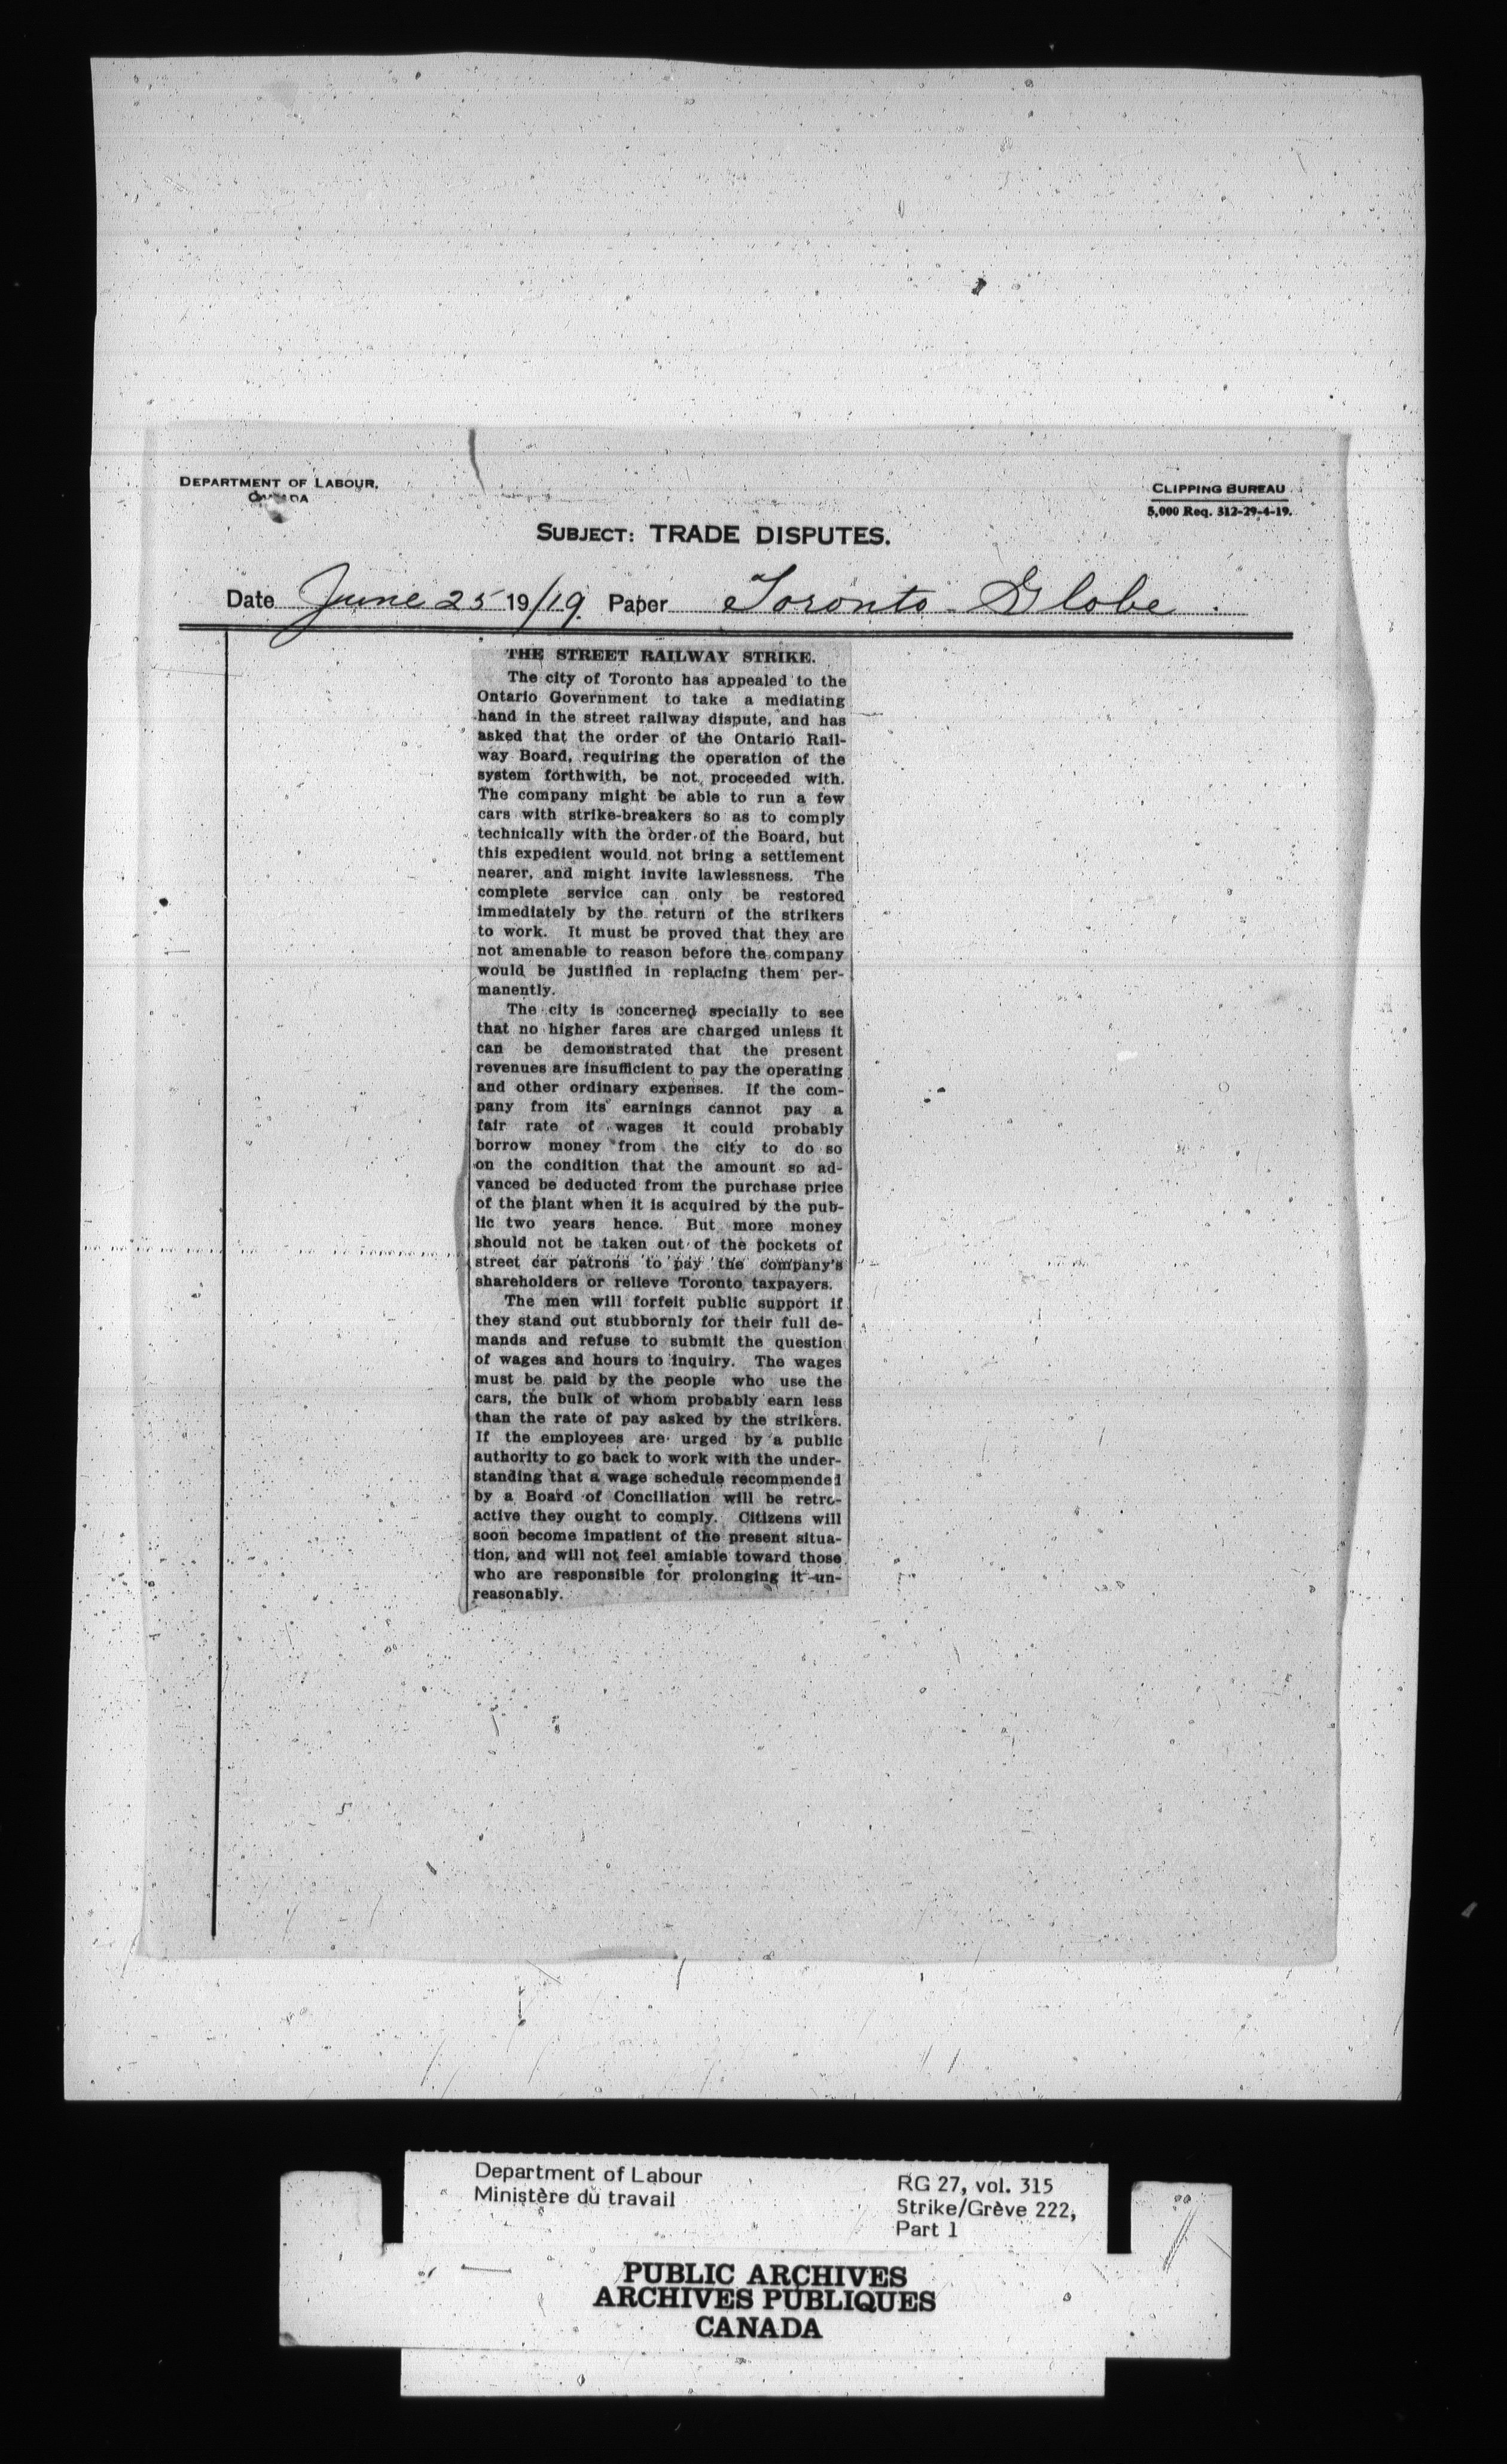 DEPARTMENT OF LABOUR,
CANADA
CLIPPING BUREAU
5,000 Req. 312-29-4-19.
SUBJECT: TRADE DISPUTES.
Date June 25 19/19. Paper Toronto Globe.
THE STREET RAILWAY STRIKE.
The city of Toronto has appealed to the
Ontario Government to take a mediating
hand in the street railway dispute, and has
asked that the order of the Ontario Rail-
way Board, requiring the operation of the
system forthwith, be not proceeded with.
The company might be able to run a few
cars with strike-breakers so as to comply
technically with the order of the Board, but
this expedient would not bring a settlement
nearer, and might invite lawlessness. The
complete service can only be restored
immediately by the return of the strikers
to work. It must be proved that they are
not amenable to reason before the company
would be justified in replacing them per-
manently.
The city is concerned specially to see
that no higher fares are charged unless it
can be demonstrated that the present
revenues are insufficient to pay the operating
and other ordinary expenses. If the com-
pany from its earnings cannot pay a
fair rate of wages it could probably
borrow money from the city to do so
on the condition that the amount so ad-
vanced be deducted from the purchase price
of the plant when it is acquired by the pub-
lic two years hence. But more money
should not be taken out of the pockets of
street car patrons to pay the company's
shareholders or relieve Toronto taxpayers.
The men will forfeit public support if
they stand out stubbornly for their full de-
mands and refuse to submit the question
of wages and hours to inquiry. The wages
must be paid by the people who use the
cars, the bulk of whom probably earn less
than the rate of pay asked by the strikers.
If the employees are urged by a public
authority to go back to work with the under-
standing that a wage schedule recommended
by a Board of Conciliation will be retro-
active they ought to comply. Citizens will
soon become impatient of the present situa-
tion, and will not feel amiable toward those
who are responsible for prolonging it un-
reasonably.
Department of Labour
Ministère du travail
RG 27, vol. 315
Strike/Grève 222,
Part 1
PUBLIC ARCHIVES
ARCHIVES PUBLIQUES
CANADA